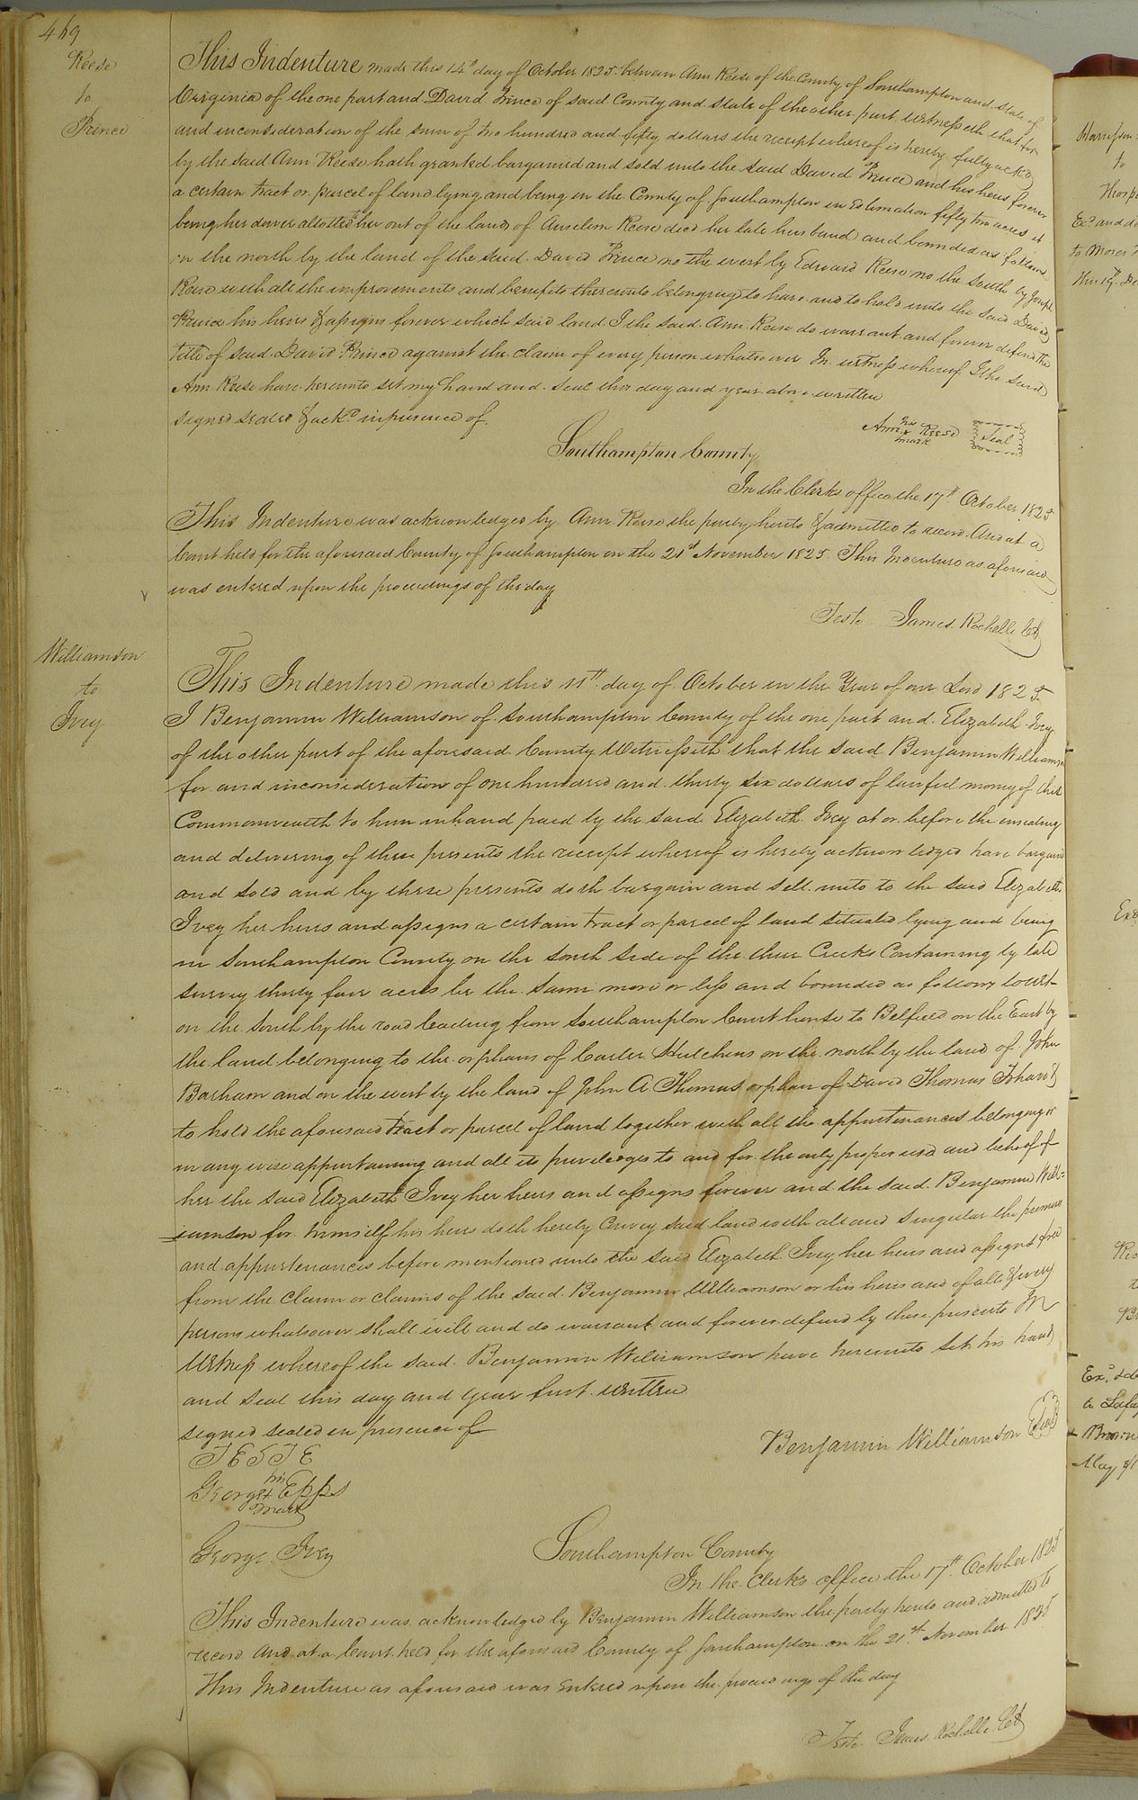 469
Reese
to
Prince
This Indenture made this 14th day of October 1825 between Ann Reese of the County of Southampton and state of
Virginia of the one part and David Prince of said County and state of the other part witnesseth that for
and inconsideration of the sum of two hundred and fifty dollars the receipt whereof is hereby fully ackd
by the said Ann Reese hath granted bargained and sold unto the said David Prince and his heirs forever
a certain tract or parcel of land lying and being in the County of Southampton in Estimation fifty two acres it
being her dower allotted her out of the land of Anselem Reese decd her late husband and bounded as follows
on the north by the land of the said David Prince on the west by Edward Reese on the South by Joseph
Reese with all the improvements and benefits thereunto belonging to have and to hold unto the said David
Prince his heirs & assigns forever which said land I the said Ann Reese do warrant and forever defend the
title of said David Prince against the claim of every person whatsoever In witness whereof I the said
Ann Reese have hereunto set my hand and seal this day and year above written
signed sealed & ackd in presence of
Ann her x mark Reese Seal
Southampton County
In the Clerks office the 17th October 1825
This Indenture was acknowledged by Ann Reese the party hereto & admitted to record And at a
Court held for the aforesaid County of Southampton on the 21st November 1825 This Indenture as aforesaid
was entered upon the proceedings of the day
Teste James Rochelle Clk
Williamson
to
Ivey
This Indenture made this 11th day of October in the Year of our Lord 1825
I Benjamin Williamson of Southampton County of the one part and Elizabeth Ivey
of the other part of the aforesaid County Witnesseth that the said Benjamin Williamson
for and inconsideration of one hundred and thirty six dollars of lawful money of this
Commonwealth to him inhand paid by the said Elizabeth Ivey at or before the ensealing
and delivering of these presents the receipt whereof is hereby acknowledged have bargained
and sold and by these presents doth bargain and sell unto to the said Elizabeth
Ivey her heirs and assigns a certain tract or parcel of land situated lying and being
in Southampton County on the south side of the three Creeks Containing by late
survey thirty four acres be the same more or less and bounded as follows towit
on the South by the road leading from Southampton Court house to Belfield on the East by
the land belonging to the orphans of Carter Hutchens on the north by the land of John
Barham and on the west by the land of John A Thomas orphan of David Thomas To have &
to hold the aforesaid tract or parcel of land together with all the appurtenances belonging or
in any wise appurtaining and all its priviledges to and for the only proper use and behoof of
her the said Elizabeth Ivey her heirs and assigns forever and the said Benjamin Will=
=iamson for himself his heirs doth hereby Convey said land with all and singular the premises
and appurtenances before mentioned unto the said Elizabeth Ivey her heirs and assigns free
from the claim or claims of the said Benjamin Williamson or his heirs and of all & every
persons whatsoever shall will and do warrant and forever defend by these presents In
Witness whereof the said Benjamin Williamson have hereunto set his hand
and seal this day and year first written
signed sealed in presence of
Benjamin Williamson Seal
TESTE
George his x mark Epps
George Ivey
Southampton County
In the Clerks office the 17th October 1825
This Indenture was acknowledged by Benjamin Williamson the party hereto and admitted to
record And at a Court held for the aforesaid County of Southampton on the 21st November 1825
This Indenture as aforesaid was Entered upon the proceedings of the day
Teste James Rochelle Clk
to
Exd and de
to Moses